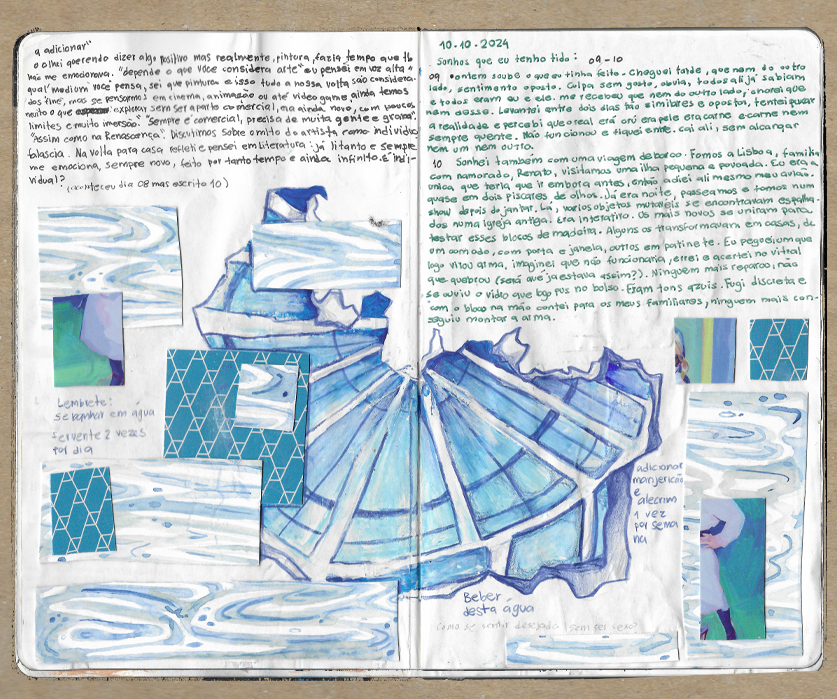 a adicionar"
o olhei querendo dizer algo positivo mas realmente, pintura, fazia tempo que
não me emocionava. "depende o que você considera arte" eu pensei em voz alta a
qual mediun você pensa, sei que pintura e isso tudo a nossa volta são considera-
dos fine, mas se pensarmos em cinema, animação ou até video game, ainda temos
muito o que explorar sem ser aparto comercial, ma ainda novo, com poucos
limites e muito imersão." "Sempre é comercial, precisa de muita gente e grana".
"Assim como na Renascença". Discutimos sobre o mito do artista como individuo
falascia. Na volta para casa refleti e pensei em Literatura: já litanto e sempre
me emociona, sempre novo, feito por tanto tempo e ainda infinito. E indi-
vidual?
(aconteceu dia 08 mas escrito 10)
Lembrete:
se banhar em água
fervente 2 vezes
por dia
10-10-2024
Sonhos que eu tenho tido: 09-10
09 ontem soube o que eu tinha feito. Cheguei tarde, que nem do outro
lado, sentimento oposto. Culpa sem gosto, obvia, todos ali já sabiam
e todos eram eu e ele. me recebeu que nem do outro lado, ignorei que
nem desse. Levantei entre dois dias tão similares e opostos, tentei puxar
a realidade e percebi que real era crú era pele era carne e carne nem
sempre quente. Não funcionou e fiquei entre. cai ali, sem alcançar
nem um nem outro.
10 Sonhei também com uma viagem de barco. Fomos a Lisboa, familia
com namorado, Renato, visitamos uma ilha pequena e povoada. Eu era a
unica que teria que ir embora antes, então adiei ali mesmo meu avião.
quase em dois piscares de olhos. Já era noite, passeamos e fomos num
show depois do jantar. Lá, varios objetos mutaveis se encontravam espalha-
dos numa igreja antiga. Era interativo. Os mais novos se uniram para
testar esses blocos de madeira. Alguns os transformavam em casas, de
um comodo, com porta e janela, outros em patinete. Eu peguei um que
logo virou arma, imaginei que não funcionaria, errei e acertei no vitral
que quebrou (será que já estava assim?). Ninguém mais reparou, não
se ouviu o vidro que logo pus no bolso. Eram tons azuis. Fugi discreta e
com o bloco na mão contei para os meus familiares, ninguem mais con-
seguiu montar a arma.
adicionar
manjericão
e
alecrim
1 vez
por sema
na
Beber
desta água
como se sentir desejada sem ser sexo?